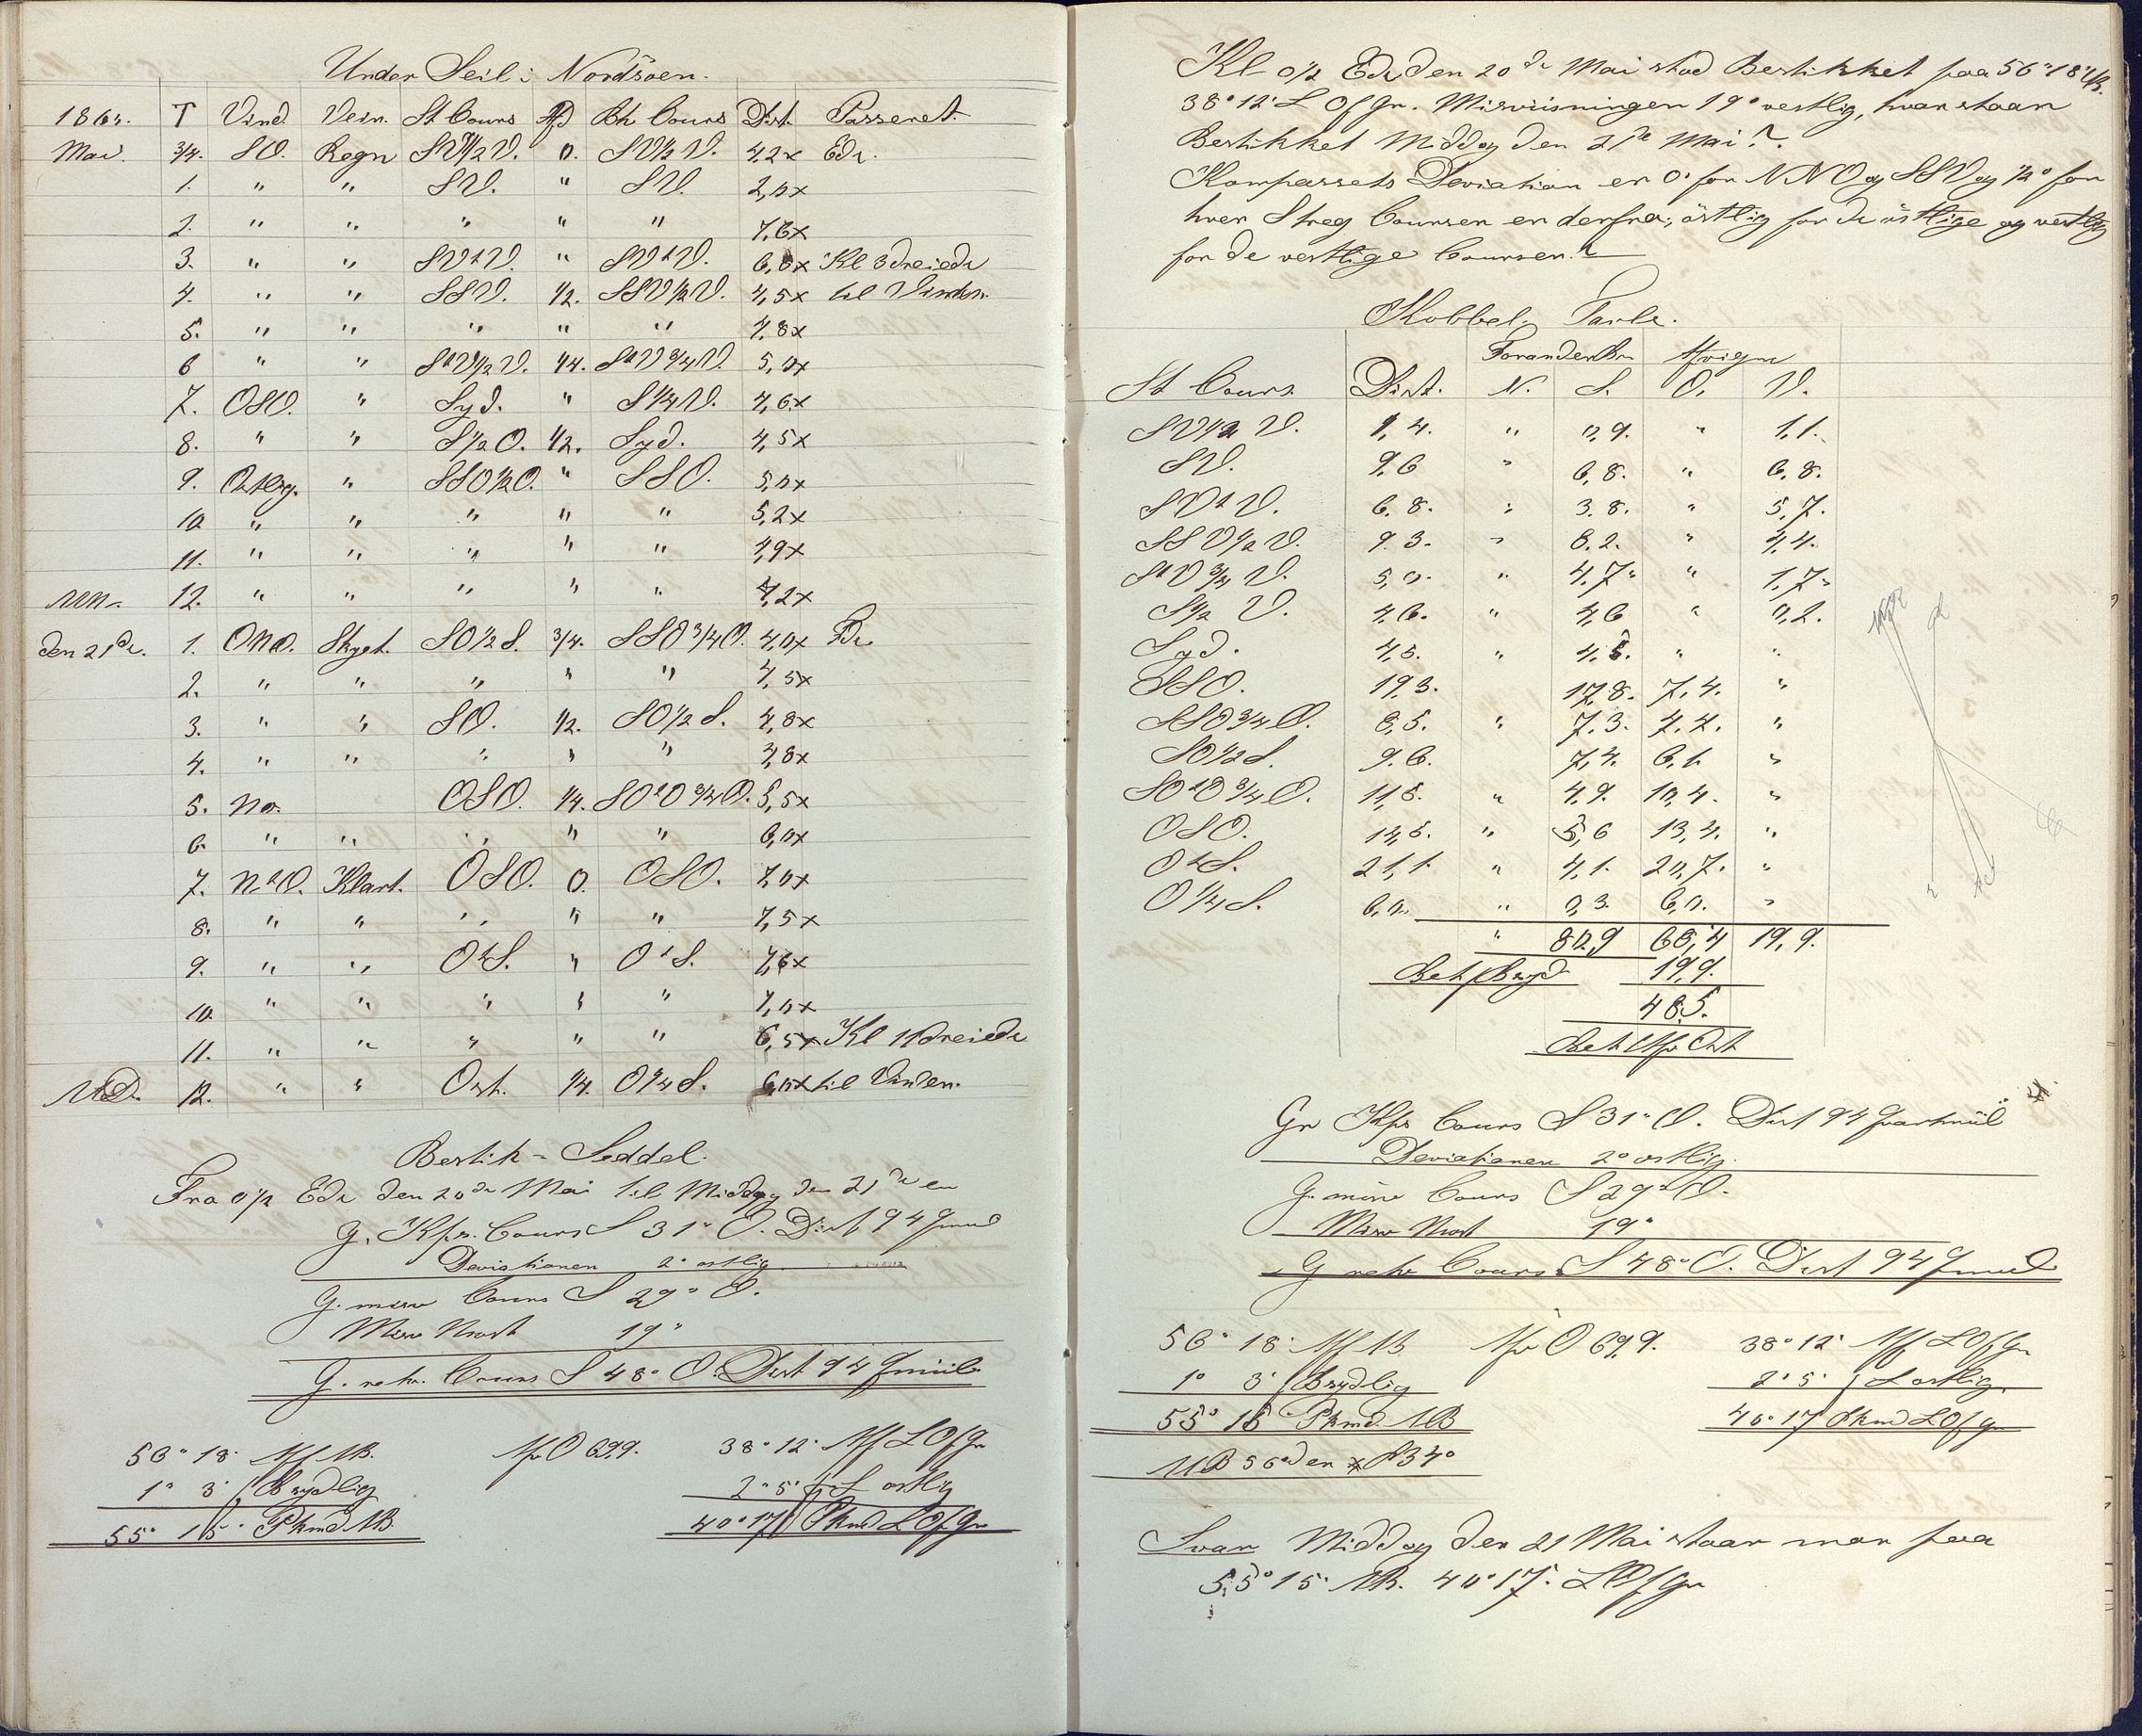 Under Seil i Nordsøen.
1865. T Vind. Veir. St Cours Afd Bh Cours Dist. Passeret.
Mai. 3/4. SO. Regn SV1/2V. 0. SV1/2V. 4,2x Edr.
1. " " SV. " SV. 2,0x
2. " " " " " 7,6x
3. " " SVtV. " SVtV. 6,8x Kl 3 dreiede
4. " " SSV. 1/2. SSV1/2V. 4,5x til Vinden.
5. " " " " " 4,8x
6 " " StV1/2V. 1/4. StV3/4V. 5,0x
7. OSO. " Syd. " S1/4V. 4,6x
8. " " S1/2O. 1/2. Syd. 4,5x
9. Østlig. " SSO1/2O. " SSO. 5,0x
10. " " " " " 5,2x
11. " " " " " 4,9x
MN. 12. " " " " " 4,2x
den 21de. 1. ONO. Skyet. SO1/2S. 3/4. SSO3/4O. 4,0x Fdr
2. " " " " " 4,5x
3. " " SO. 1/2. SO1/2S. 4,8x
4. " " " " " 4,8x
5. No. OSO. 1/4. SOtO3/4O. 5,5x
6. " " " " " 6,0x
7. NtO. Klart. OSO. 0. OSO. 7,0x
8. " " " " " 7,5x
9. " " OtS. " OtS. 7,6x
10. " " " " " 7,0x
11. " " " " " 6,5x Kl 11 dreiede
MD. 12. " " Ost. 1/4. O1/4S. 6,0x til Vinden.
Bestik-Seddel.
Fra 0 1/2 Edr den 20de Mai til Middag den 21de en
G. Kps. Cours S 31° O. Dist 94 Qmiil
Deviationen 2° ostlig
G. misv Cours S 29° O.
Misv Nvest 19°
G. retv. Cours S 48° O. Dist 94 Qmiil
56° 18' Aff NB. Afv O 69,9. 38° 12' Aff LOfGr
1° 3' fBsydlig 2° 5' fL ostlig
55° 15' Pkmd NB. 40° 17' Pkmd LOfGr
Kl 0 1/2 Edr den 20de Mai stod Bestikket paa 56° 18' NB.
38° 12' L OfGr. Misviisningen 19° vestlig, hvor staar
Bestikket Middag den 21de Mai?.
Kompassets Deviation er 0° for NNO og SSV og 1/2° for
hver Streg Coursen er derfra, østlig for de østlige og vestlig
for de vestlige Courser.
Kobbel-Tavle.
Forandr Br Afvign
St Cours. Dist. N. S. O. V.
SV1/2 V. 1,4. " 0,9. " 1,1.
SV. 9,6 " 6,8. " 6,8.
SVtV. 6,8. " 3,8. " 5,7.
SSV1/2V. 9,3. " 8,2. " 4,4.
StV3/4 V. 5,0. " 4,7. " 1,7.
S1/4 V. 4,6. " 4,6 " 0,2.
Syd. 4,5. " 4,5. " "
SSO. 19,3. 17,8. 7,4. "
SSO3/4O. 8,5. " 7,3. 4,4. "
SO1/2S. 9,6. 7,4. 6,1. "
SOtO3/4O. 11,5. " 4,9. 10,4. "
OSO. 14,5. " 5,6 13,4. "
OtS. 21,1. " 4,1. 20,7. "
O1/4S. 6,0. " 0,3. 6,0. "
" 80,9 68,4 19,9.
Beh fB syd 19,9.
48,5.
Beh Afv Ost
Gr Kps Cours S 31° O. Dist 94 Qvartmiil
Deviationen 2° ostlig
G. misv Cours S 29° O.
Misv Nvest 19°
G retv Cours S 48° O. Dist 94 Qmiil
56° 18' Aff NB Afv O 69,9. 38° 12' Aff LOfGr
1° 3' fBsydlig 2° 5' fL ostlig
55° 15' Pkmd NB 40° 17' Pkmd LOfGr
MB 56° den x C 34°
Svar Middag den 21 Mai staar man paa
55° 15' NB. 40° 17' LOfGr